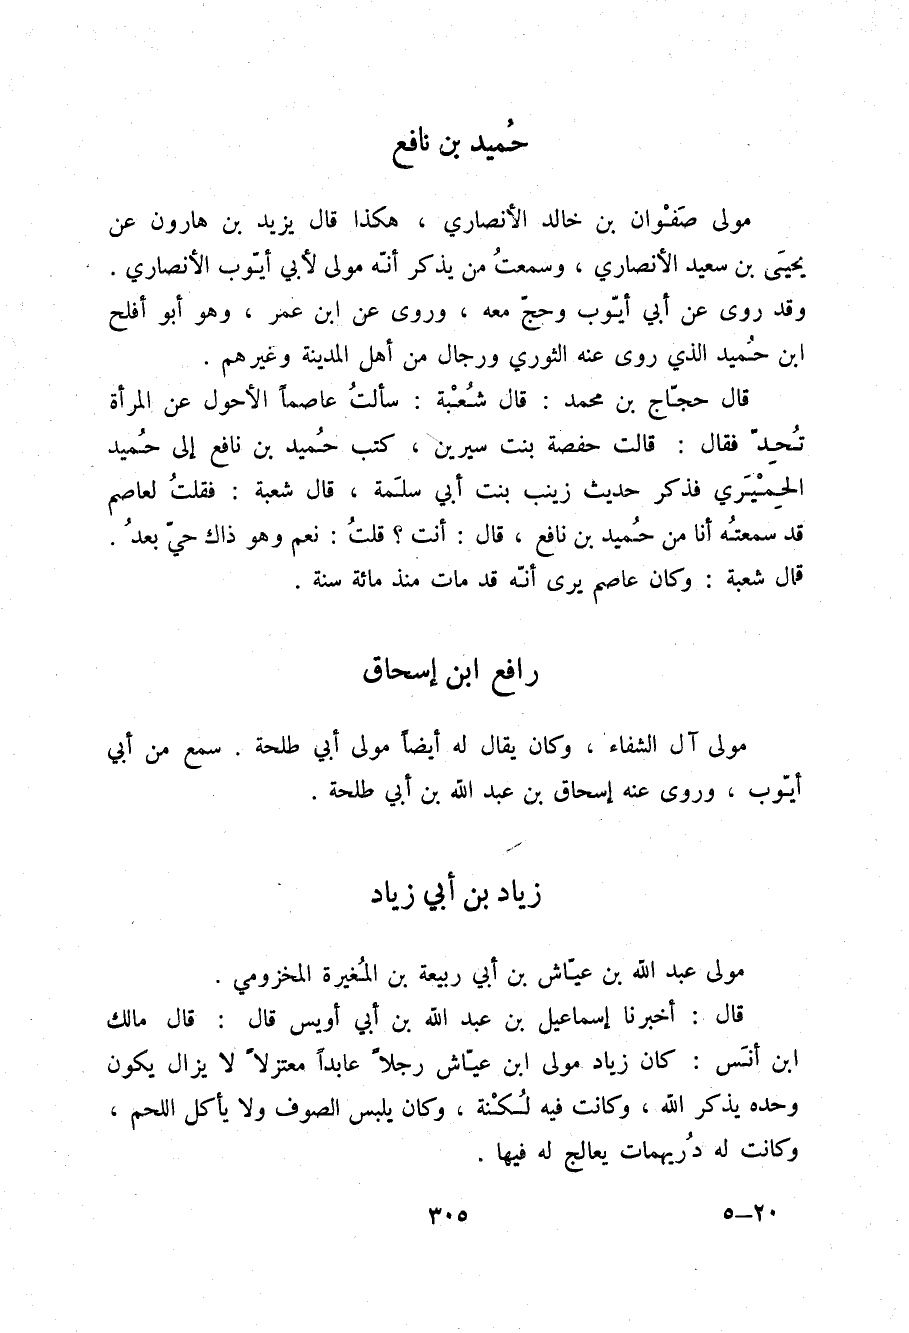 حُميد بن نافع
مولى صَفْوان بن خالد الأنصاري ، هكذا قال يزيد بن هارون عن
يحيَى بن سعيد الأنصاري ، وسمعتُ من يذكر أنّه مولى لأبي أيّوب الأنصاري .
وقد روى عن أبي أيّوب وحجّ معه ، وروى عن ابن عمر ، وهو أبو أفلح
ابن حُميد الذي روى عنه الثوري ورجال من أهل المدينة وغيرهم .
قال حجّاج بن محمد : قال شُعْبة : سألتُ عاصماً الأحول عن المرأة
تُحِدّ فقال : قالت حفصة بنت سيرين ، كتب حُميد بن نافع إلى حُميد
الحِمْيَري فذكر حديث زينب بنت أبي سلَمة ، قال شعبة : فقلتُ لعاصم
قد سمعتُه أنا من حُميد بن نافع ، قال : أنت ؟ قلتُ : نعم وهو ذاك حيّ بعدُ .
قال شعبة : وكان عاصم يرى أنّه قد مات منذ مائة سنة .
رافع ابن إسحاق
مولى آل الشفاء ، وكان يقال له أيضاً مولى أبي طلحة . سمع من أبي
أيّوب ، وروى عنه إسحاق بن عبد الله بن أبي طلحة .
زياد بن أبي زياد
مولى عبد الله بن عيّاش بن أبي ربيعة بن المُغيرة المخزومي .
قال : أخبرنا إسماعيل بن عبد الله بن أبي أويس قال : قال مالك
ابن أنَس : كان زياد مولى ابن عيّاش رجلاً عابداً معتزلاً لا يزال يكون
وحده يذكر الله ، وكانت فيه لُكْنة ، وكان يلبس الصوف ولا يأكل اللحم ،
وكانت له دُريهمات يعالج له فيها .
٣٠٥
٢٠–٥